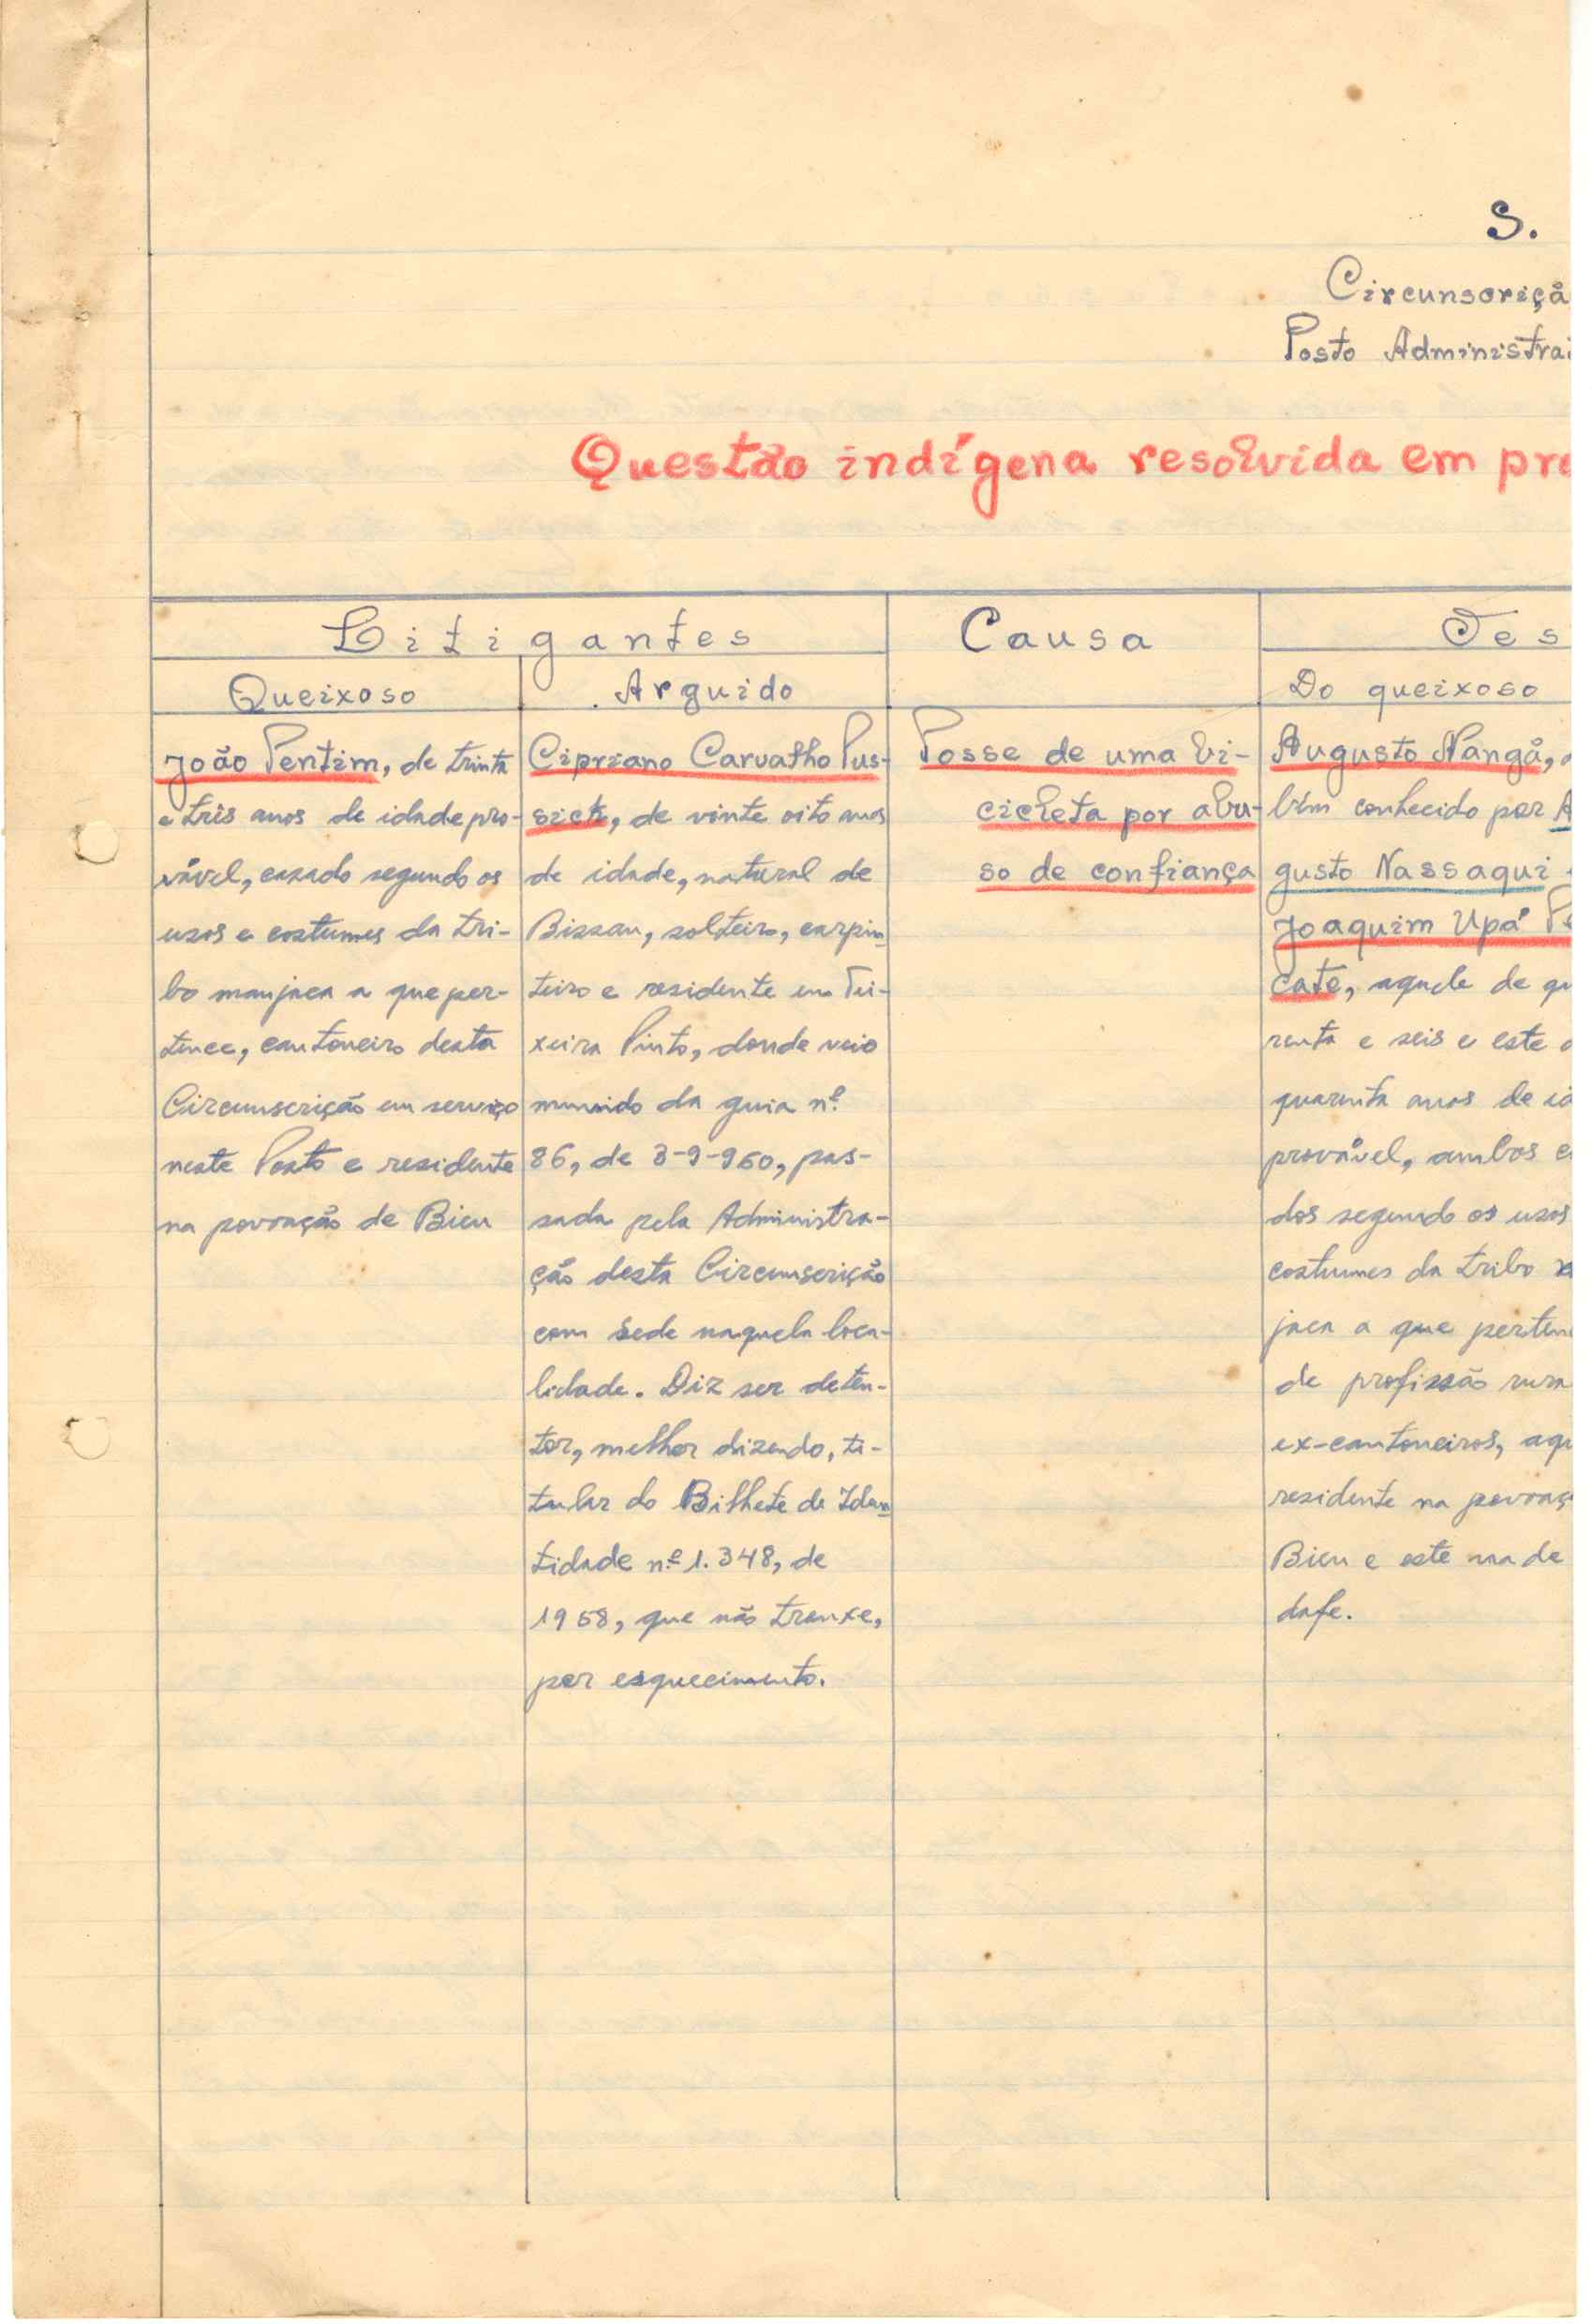 S.
Circunscriçã
Posto Administra
Questão indígena resolvida em pr
Litigantes
Queixoso
João Pentim, de trinta
e três anos de idade pro-
vável, casado segundo os
usos e costumes da tri-
bo manjaca a que per-
tence, cantoneiro desta
Circunscrição em serviço
neste Posto e residente
na povoação de Bieu
Arguido
Cipriano Carvalho Pus-
sick, de vinte oito anos
de idade, natural de
Bissau, solteiro, carpin
teiro e residente em Tei-
xeira Pinto, donde veio
munido da guia n.º
86, de 3-9-960, pas-
sada pela Administra-
ção desta Circunscrição
com sede naquela loca-
lidade. Diz ser deten-
tor, melhor dizendo, ti-
tular do Bilhete de Iden
tidade n.º 1.348, de
1958, que não trouxe,
por esquecimento.
Causa
Posse de uma bi-
cicleta por abu-
so de confiança
Tes
Do queixoso
Augusto Nangã,
bém conhecido por A
gusto Nassaqui
Joaquim Upá
cate, aquele de qu
renta e seis e este
quarenta anos de id
provável, ambos c
dos segundo os usos
costumes da tribo
jaca a que perten
de profissão rura
ex-cantoneiros, aqu
residente na povoaç
Bieu e este na de
dafe.